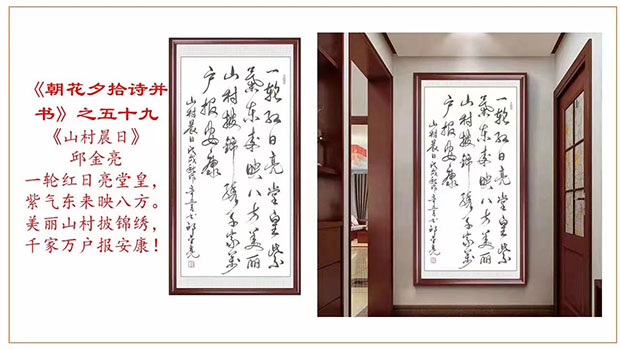 《朝花夕拾诗并
书》之五十九
《山村晨日》
邱金亮
一轮红日亮堂皇，
紫气东来映八方。
美丽山村披锦绣，
千家万户报安康！
一轮红日亮堂皇紫
氣东来映八方美丽
山村披锦绣千家万
户报安康
山村晨日戊戌秋邱金亮
一轮红日亮堂皇紫
氣东来映八方美丽
山村披锦绣千家万
户报安康
山村晨日戊戌秋邱金亮